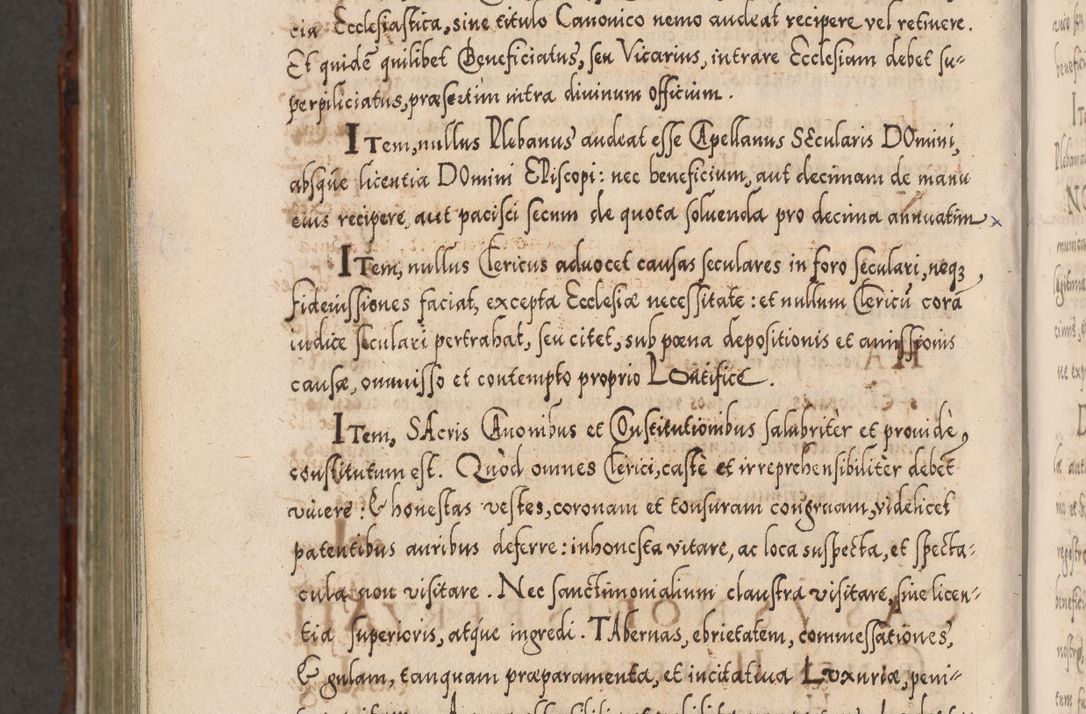 cia Ecclesiastica, sine titulo Canonico nemo audeat recipere vel retinere.
Et quidē quilibet Beneficiatus, seu Vicarius, intrare Ecclesiam debet su-
perpiliciatus, præsertim intra divinum officium.
ITem, nullus Plebanus audeat esse Capellanus SEcularis DOmini,
absque licentia DOmini EPiscopi: nec beneficium, aut decimam de manu
eius recipere, aut pacisci secum de quota soluenda pro decima annuatim
ITem, nullus Clericus aduocet causas seculares in foro seculari, neqȝ,
fideiussiones faciat, excepta Ecclesiæ necessitate: et nullum Clericū corā
iudice seculari pertrahat, seu citet, sub pœna depositionis et amissionis
causæ, omnisso et contempto proprio POntifice.
ITem, SAcris CAnonibus et COnstitutionibus salubritèr et prouidè,
constitutum est. Quòd omnes Clerici, castè et irreprehensibilitèr debēt
viuere: & honestas vestes, coronam et tonsuram congruam, videlicet
patentibus auribus deferre: inhonesta vitare, ac loca suspecta, et specta-
cula non visitare. Nec sanctimonialium claustra visitare, sine licen-
tia superioris, atque ingredi. TAbernas, ebrietatem, commessationes,
& gulam, tanquam præparamenta, et incitatiua LUxuriæ, peni-